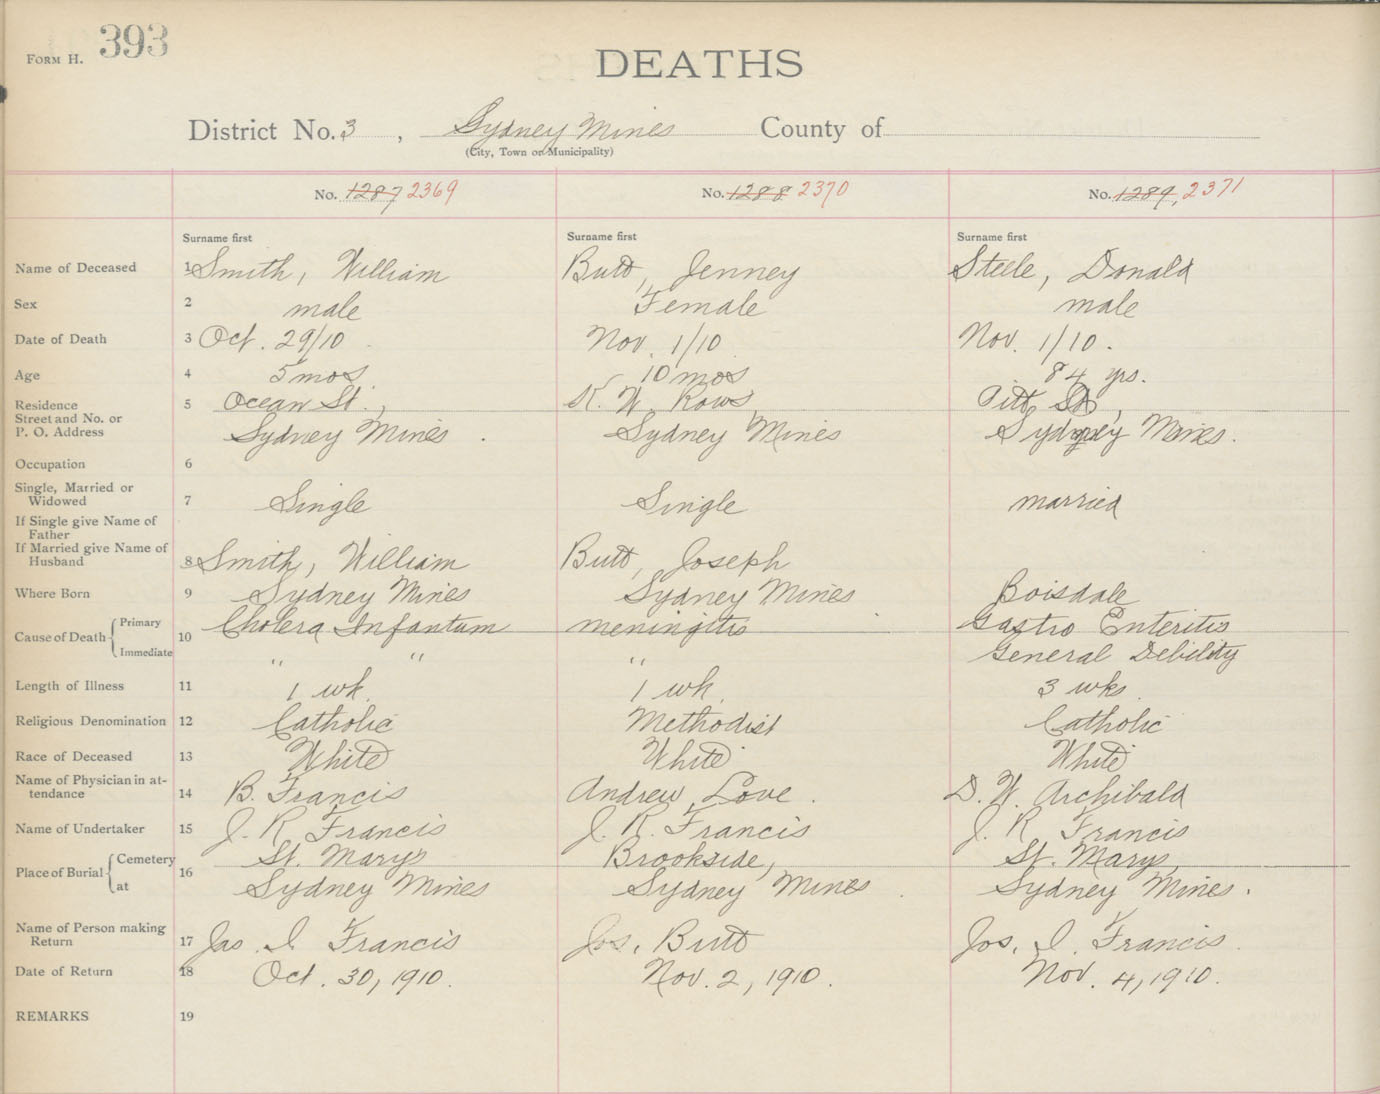 Form H. 393
DEATHS
District No. 3, Sydney Mines County of
(City, Town or Municipality)
No. 1287 2369 No. 1288 2370 No. 1289, 2371
Surname first Surname first Surname first
Name of Deceased 1 Smith, William Butt, Jenney Steele, Donald
Sex 2 male Female male
Date of Death 3 Oct. 29/10 Nov. 1/10 Nov. 1/10.
Age 4 5 mos. 10 mos 84 yrs.
Residence 5 Ocean St., K. W. Rows Pitt St,
Street and No. or
P. O. Address Sydney Mines. Sydney Mines Sydney Mines.
Occupation 6
Single, Married or
Widowed 7 Single Single married
If Single give Name of
Father
If Married give Name of
Husband 8 Smith, William Butt, Joseph
Where Born 9 Sydney Mines Sydney Mines Boisdale
Cause of Death 10 Primary Cholera Infantum meningitis Gastro Enteritis
Immediate " " " General Debility
Length of Illness 11 1 wk. 1 wk. 3 wks.
Religious Denomination 12 Catholic Methodist Catholic
Race of Deceased 13 White White White
Name of Physician in at-
tendance 14 B. Francis Andrew Love. D. W. Archibald
Name of Undertaker 15 J. R. Francis J. R. Francis J. R. Francis
Place of Burial 16 Cemetery St. Marys Brookside, St. Marys,
at Sydney Mines Sydney Mines. Sydney Mines.
Name of Person making
Return 17 Jas. I. Francis Jos. Butt Jos. I. Francis.
Date of Return 18 Oct. 30, 1910. Nov. 2, 1910. Nov. 4, 1910.
REMARKS 19